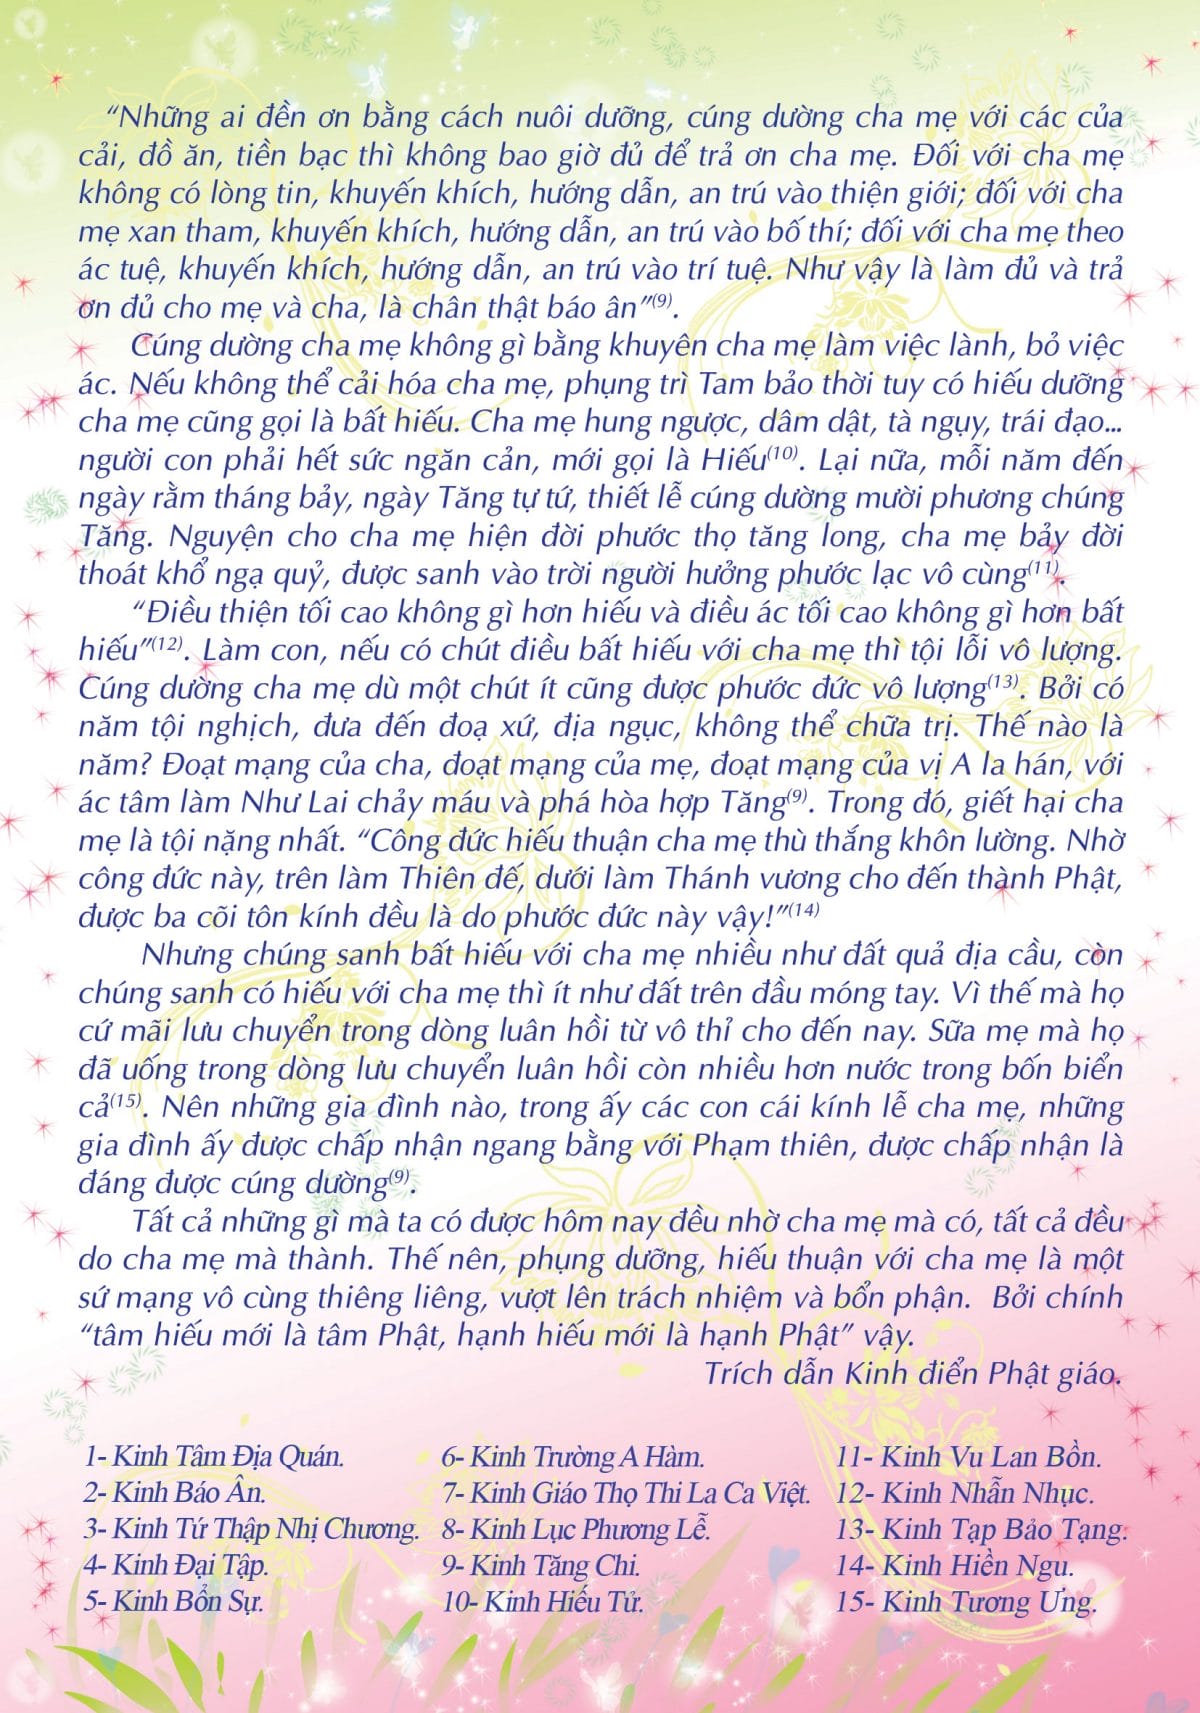 “Những ai đền ơn bằng cách nuôi dưỡng, cúng dường cha mẹ với các của
cải, đồ ăn, tiền bạc thì không bao giờ đủ để trả ơn cha mẹ. Đối với cha mẹ
không có lòng tin, khuyến khích, hướng dẫn, an trú vào thiện giới; đối với cha
mẹ xan tham, khuyến khích, hướng dẫn, an trú vào bố thí; đối với cha mẹ theo
ác tuệ, khuyến khích, hướng dẫn, an trú vào trí tuệ. Như vậy là làm đủ và trả
ơn đủ cho mẹ và cha, là chân thật báo ân”(9).
Cúng dường cha mẹ không gì bằng khuyên cha mẹ làm việc lành, bỏ việc
ác. Nếu không thể cải hóa cha mẹ, phụng trì Tam bảo thời tuy có hiếu dưỡng
cha mẹ cũng gọi là bất hiếu. Cha mẹ hung ngược, dâm dật, tà ngụy, trái đạo...
người con phải hết sức ngăn cản, mới gọi là Hiếu(10). Lại nữa, mỗi năm đến
ngày rằm tháng bảy, ngày Tăng tự tứ, thiết lễ cúng dường mười phương chúng
Tăng. Nguyện cho cha mẹ hiện đời phước thọ tăng long, cha mẹ bảy đời
thoát khổ ngạ quỷ, được sanh vào trời người hưởng phước lạc vô cùng(11).
“Điều thiện tối cao không gì hơn hiếu và điều ác tối cao không gì hơn bất
hiếu”(12). Làm con, nếu có chút điều bất hiếu với cha mẹ thì tội lỗi vô lượng.
Cúng dường cha mẹ dù một chút ít cũng được phước đức vô lượng(13). Bởi có
năm tội nghịch, đưa đến đoạ xứ, địa ngục, không thể chữa trị. Thế nào là
năm? Đoạt mạng của cha, đoạt mạng của mẹ, đoạt mạng của vị A la hán, với
ác tâm làm Như Lai chảy máu và phá hòa hợp Tăng(9). Trong đó, giết hại cha
mẹ là tội nặng nhất. “Công đức hiếu thuận cha mẹ thù thắng khôn lường. Nhờ
công đức này, trên làm Thiên đế, dưới làm Thánh vương cho đến thành Phật,
được ba cõi tôn kính đều là do phước đức này vậy!”(14)
Nhưng chúng sanh bất hiếu với cha mẹ nhiều như đất quả địa cầu, còn
chúng sanh có hiếu với cha mẹ thì ít như đất trên đầu móng tay. Vì thế mà họ
cứ mãi lưu chuyển trong dòng luân hồi từ vô thỉ cho đến nay. Sữa mẹ mà họ
đã uống trong dòng lưu chuyển luân hồi còn nhiều hơn nước trong bốn biển
cả(15). Nên những gia đình nào, trong ấy các con cái kính lễ cha mẹ, những
gia đình ấy được chấp nhận ngang bằng với Phạm thiên, được chấp nhận là
đáng được cúng dường(9).
Tất cả những gì mà ta có được hôm nay đều nhờ cha mẹ mà có, tất cả đều
do cha mẹ mà thành. Thế nên, phụng dưỡng, hiếu thuận với cha mẹ là một
sứ mạng vô cùng thiêng liêng, vượt lên trách nhiệm và bổn phận. Bởi chính
“tâm hiếu mới là tâm Phật, hạnh hiếu mới là hạnh Phật” vậy.
Trích dẫn Kinh điển Phật giáo.
1- Kinh Tâm Địa Quán.
2- Kinh Báo Ân.
3- Kinh Tứ Thập Nhị Chương.
4- Kinh Đại Tập.
5- Kinh Bổn Sự.
6- Kinh Trường A Hàm.
7- Kinh Giáo Thọ Thi La Ca Việt.
8- Kinh Lục Phương Lễ.
9- Kinh Tăng Chi.
10- Kinh Hiếu Tử.
11- Kinh Vu Lan Bồn.
12- Kinh Nhẫn Nhục.
13- Kinh Tạp Bảo Tạng.
14- Kinh Hiền Ngu.
15- Kinh Tương Ưng.